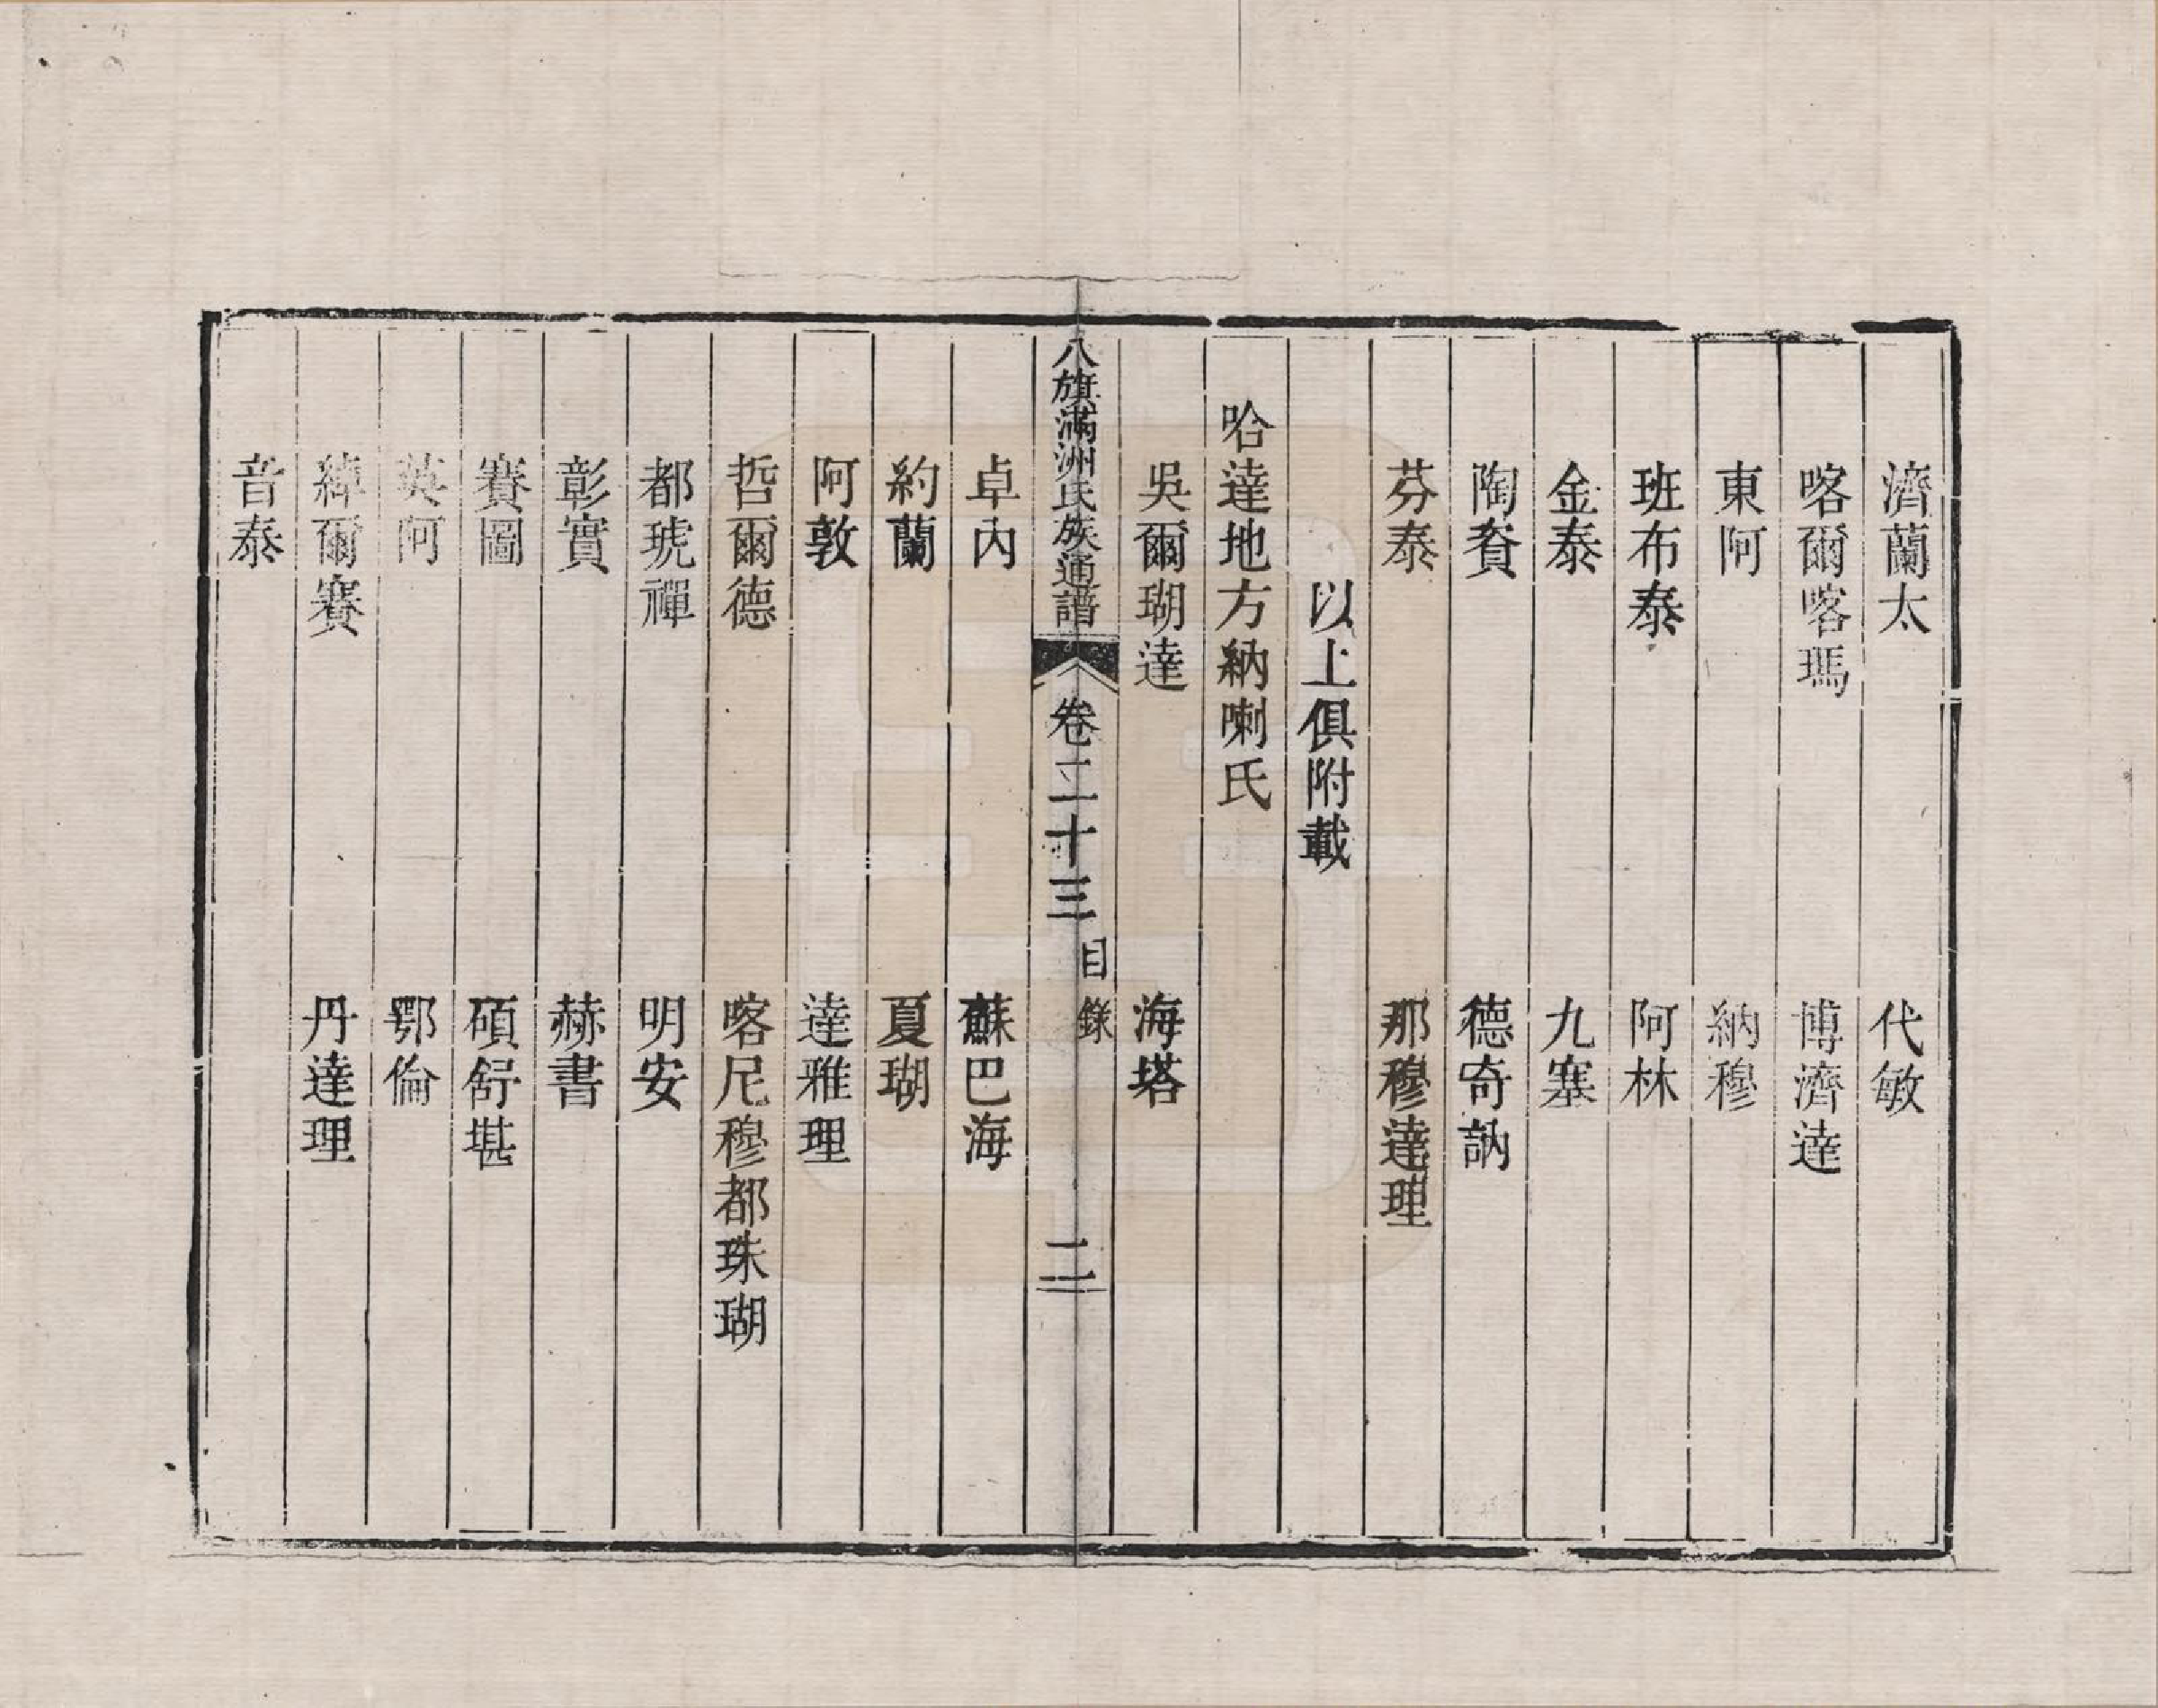 濟蘭太　代敏
喀爾喀瑪　博濟達
東阿　納穆
班布泰　阿林
金泰　九塞
陶賚　德奇訥
芬泰　那穆達理
以上俱附載
哈達地方納喇氏
吳爾瑚達　海塔
八旗滿洲氏族通譜　卷二十三　目錄　二
卓內　蘇巴海
約蘭　夏瑚
阿敦　達雅理
哲爾德　喀尼穆都珠瑚
都琥禪　明安
彰實　赫書
賽圖　碩舒堪
英阿　鄂倫
綽爾賽　丹達理
音泰